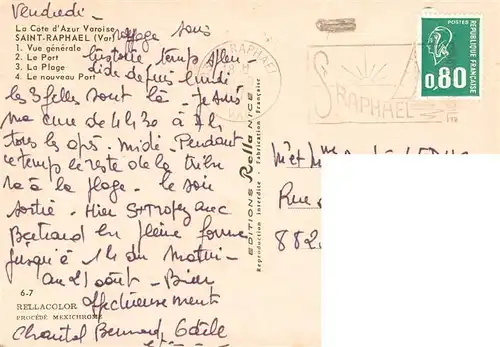 Vendredi -
La Côte d'Azur Varoise
SAINT-RAPHAEL (Var)
1. Vue générale
2. Le Port
3. La Plage
4. Le nouveau Port
voyage sans
histoire temps splen-
dide depuis lundi
les 3 filles sont là - Je suis
ma cure de 4h30 à 7h
tous les aps. midi. Pendant
ce temps le reste de la tribu
va à la plage. le soir
sortie - Hier St Tropez avec
Bertrand en pleine forme
jusqu'à 1h du matin
au 21 août - Bien
affectueusement
Chantal Bernard Gaële
6-7
RELLACOLOR
PROCÉDÉ MEXICHROME
EDITIONS Rella NICE
Reproduction Interdite - Fabrication Française
RAPHAEL
VAR
S-RAPHAEL
POSTES
RÉPUBLIQUE FRANÇAISE
0,80
M et M
Rue
882